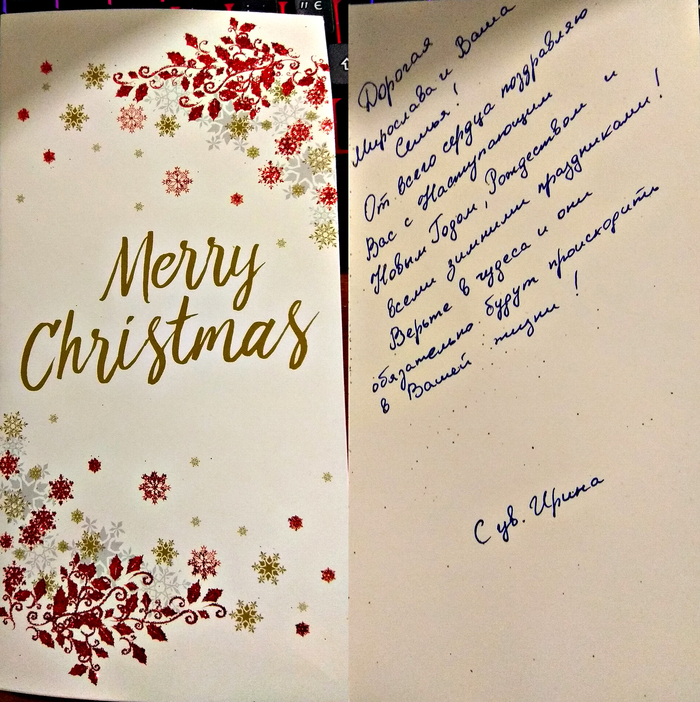 Merry
Christmas
Дорогая
Мирослава и Ваша
Семья!
От всего сердца поздравляю
Вас с Наступающим
Новым Годом, Рождеством и
всеми зимними праздниками!
Верьте в чудеса и они
обязательно будут происходить
в Вашей жизни!
С ув. Ирина